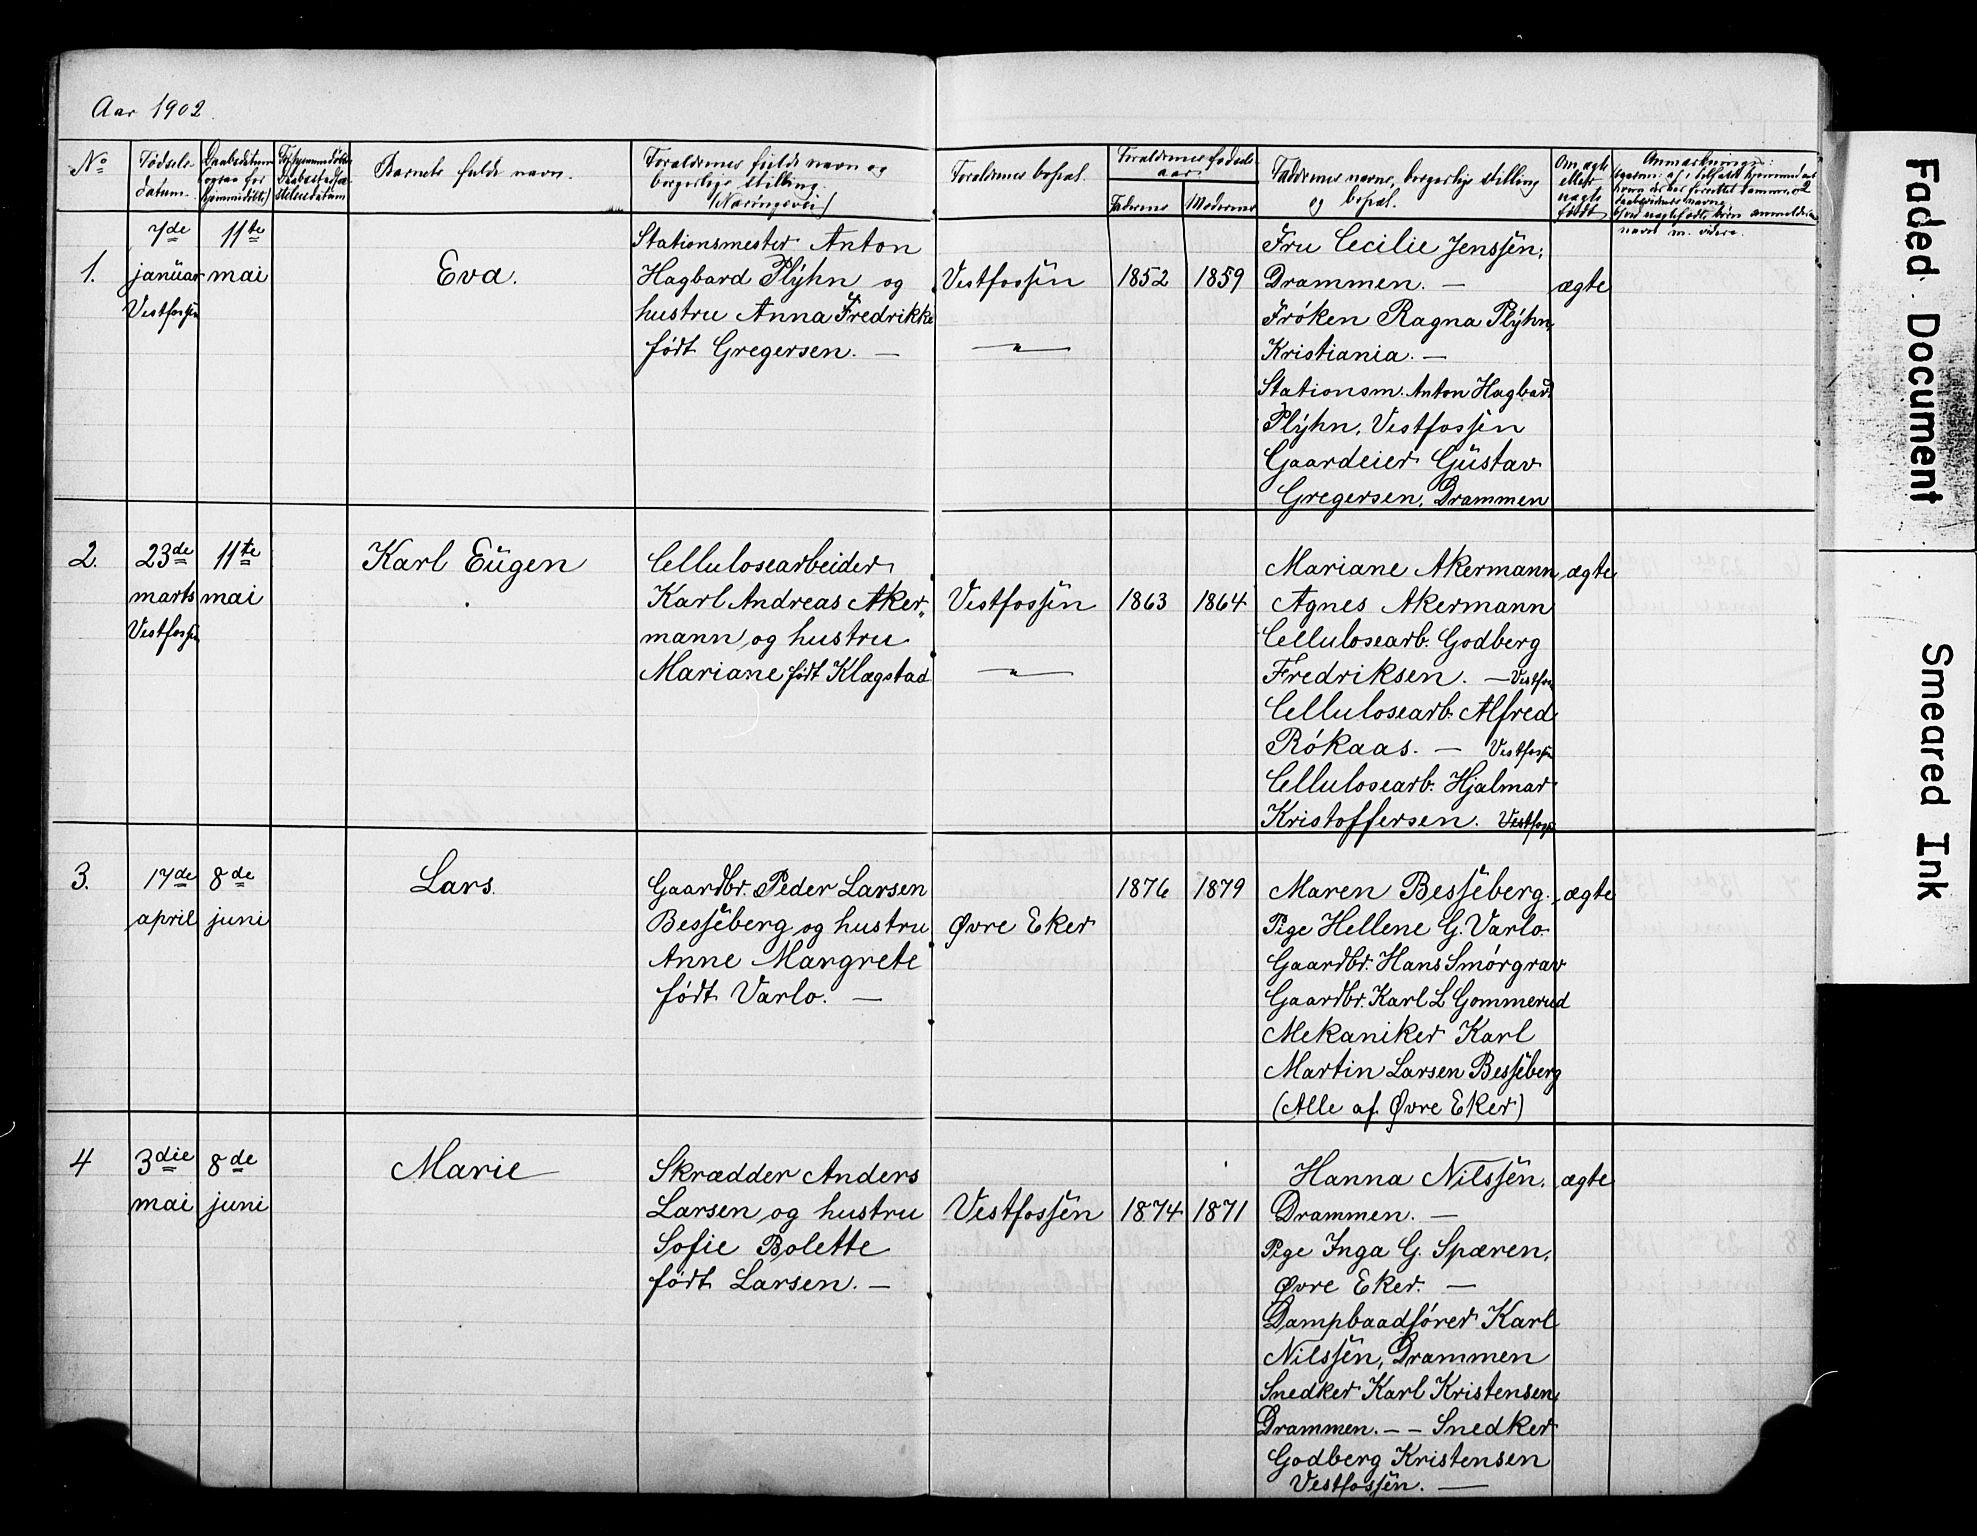 Aar 1902.
No
Fødsels
datum.
Daabsdatum
(ogsaa for
hjemmedøbte)
Barnets fulde navn.
Forældrenes fulde navn og
borgerlige stilling.
(Næringsvei)
Forældrenes bopæl.
Forældrenes fødsels
aar
Faderens
Moderens
Faddernes navne, borgerlige stilling
og bopæl.
Om ægte
eller
uægte
født
Anmærkninger:
navn m. videre.
1.
7de
januar
Vestfossen
11te
mai
Eva.
Stationsmester Anton
Hagbard Plÿhn og
hustru Anna Fredrikke
født Gregersen. —
Vestfossen
— " —
1852
1859
Fru Cecilie Jenssen,
Drammen. —
Frøken Ragna Plÿhn,
Kristiania. —
Stationsm. Anton Hagbard
Plÿhn, Vestfossen
Gaardeier Gustav
Gregersen, Drammen
ægte
2.
23de
marts
Vestfossen
11te
mai
Karl Eugen
Cellulosearbeider
Karl Andreas Aker„
mann og hustru
Mariane født Klægstad
Vestfossen
— " —
1863
1864
Mariane Akermann
Agnes Akermann
Cellulosearb. Godberg
Fredriksen. — Vestfos
Cellulosearb. Alfred
Røkaas. — Vestfossen
Cellulosearb. Hjalmar
Kristoffersen. Vestfossen
ægte
3.
17de
april
8de
juni
Lars.
Gaardbr. Peder Larsen
Besseberg og hustru
Anne Margrete
født Varlo. —
Øvre Eker
1876
1879
Maren Besseberg.
Pige Hellene G. Varlo.
Gaardbr. Hans Smørgrav
Gaardbr. Karl L Gommerud
Mekaniker Karl
Martin Larsen Besseberg
(Alle af Øvre Eker)
ægte
4
3die
mai
8de
juni
Marie
Skrædder Anders
Larsen og hustru
Sofie Bolette
født Larsen. —
Vestfossen
1874
1871
Hanna Nilssen.
Drammen. —
Pige Inga G. Spæren,
Øvre Eker. —
Dampbaadfører Karl
Nilssen, Drammen
Snedker Karl Kristensen,
Drammen. — — Snedker
Godberg Kristensen
Vestfossen. —
ægte
Faded Document
Smeared Ink